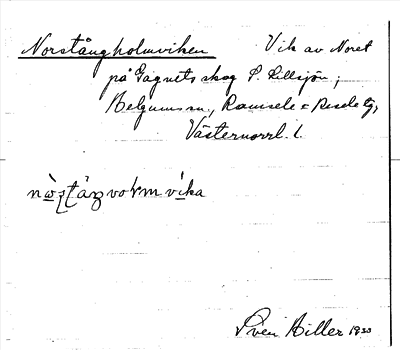 Norstångholmviken Vik av Noret
på Gagnets skog S. Lillsjön;
Helgums sn., Ramsele o Resele tg,
Västernorrl. l.
vika
Sven Hiller 1930